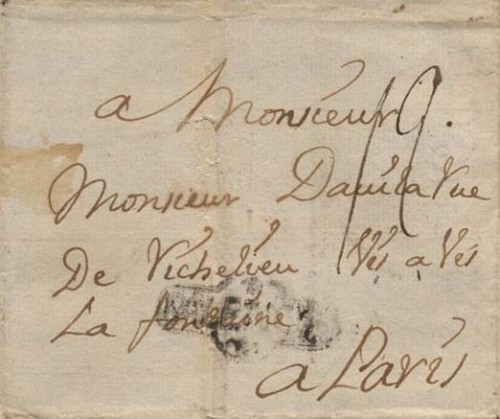 a Monsieur
Monsieur Davila Rue
De Richelieu Vis a Vis
La fontaine
a Paris